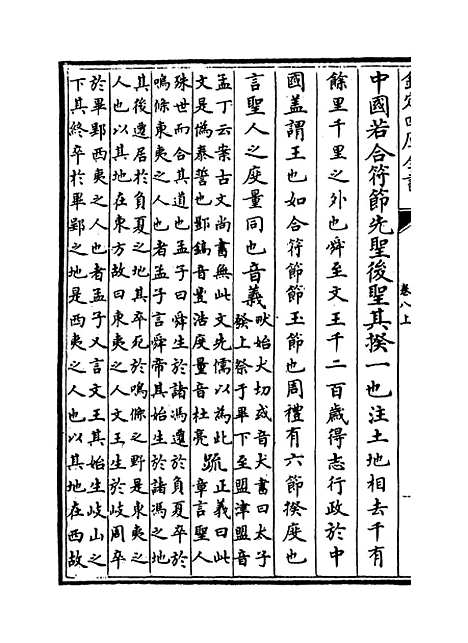 欽定四庫全書
卷八上
中國若合符節先聖後聖其揆一也注土地相去千有
餘里千里之外也舜至文王千二百歲得志行政於中
國蓋謂王也如合符節節玉節也周禮有六節揆度也
言聖人之度量同也音義畎始犬切或音犬書曰太子
發上祭于畢下至盟津盟音
孟丁云案古文尚書無此文先儒以為此
文是偽泰誓也酆鎬音豐浩度量音杜亮疏正義曰此
章言聖人
殊世而合其道也孟子曰舜生於諸馮遷於負夏卒於
鳴條東夷之人也者孟子言舜帝其始生於諸馮之地
其後遷居於負夏之地其卒死於鳴條之野是東夷之
人也以其地在東方故曰東夷之人文王生於岐周卒
於畢郢西夷之人也者孟子又言文王其始生岐山之
下其終卒於畢郢之地是西夷之人也以其地在西故